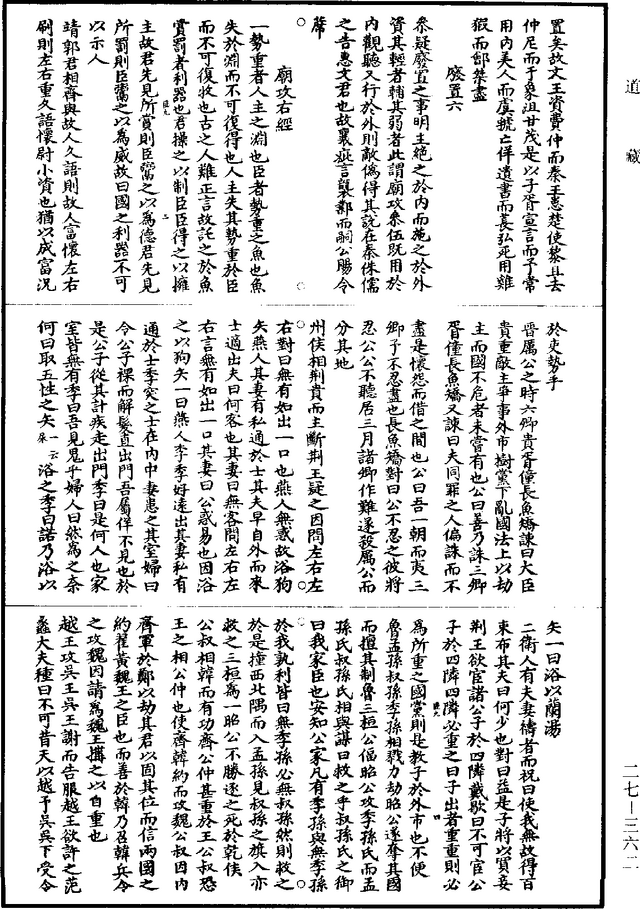 道藏
二七—三六二
置矣故文王資費仲而秦王患楚使黎且去
仲尼而干象沮甘茂是以子胥宣言而子常
用内美人而虞虢亡佯遺書而萇弘死用雞
猳而鄶桀盡
廢置六
叅疑廢置之事明主絶之於内而施之於外
資其輕者輔其弱者此謂廟攻叅伍既用於
内觀聽又行於外則敵偽得其說在秦侏儒
之告惠文君也故襄疵言襲鄴而嗣公賜令
蓆
廟攻右經
一勢重者人主之淵也臣者勢重之魚也魚
失於淵而不可復得也人主失其勢重於臣
而不可復收也古之人難正言故託之於魚
賞罰者利器也君操之以制臣臣得之以擁
主故君先見所賞則臣鬻之以為德君先見
所罰則臣鬻之以為威故曰國之利器不可
以示人
靖郭君相齊與故人久語則故人富懷左右
刷則左右重久語懷尉小資也猶以成富况
於吏勢乎
晉厲公之時六卿貴胥僮長魚矯諫曰大臣
貴重敵主爭事外市樹黨下亂國法上以劫
主而國不危者未嘗有也公曰善乃誅三卿
胥僮長魚矯又諫曰夫同罪之人偏誅而不
盡是懷怨而借之間也公曰吾一朝而夷三
卿予不忍盡也長魚矯對曰公不忍之彼將
忍公公不聽居三月諸卿作難遂殺厲公而
分其地
州侯相荆貴而主斷荆王疑之因問左右左
右對曰無有如出一口也燕人無惑故浴狗
矢燕人其妻有私通於士其夫早自外而來
士適出夫曰何客也其妻曰無客問左右左
右言無有如出一口其妻曰公惑易也因浴
之以狗矢一曰燕人李季好遠出其妻私有
通於士季突之士在内中妻患之其室婦曰
令公子裸而解髮直出門吾屬佯不見也於
是公子從其計疾走出門季曰是何人也家
室皆無有季曰吾見鬼乎婦人曰然為之奈
何曰取五牲之矢一云浴之季曰諾乃浴以
矢一曰浴以蘭湯
二衛人有夫妻禱者而祝曰使我無故得百
束布其夫曰何少也對曰益是子將以買妾
荆王欲宦諸公子於四隣戴歇曰不可宦公
子於四隣四隣必重之曰子出者重重則必
為所重之國黨則是教子於外市也不便
魯孟孫叔孫季孫相戮力劫昭公遂奪其國
而擅其制魯三桓公偪昭公攻季孫氏而孟
孫氏叔孫氏相與謀曰救之乎叔孫氏之御
曰我家臣也安知公家凡有季孫與無季孫
於我孰利皆曰無季孫必無叔孫然則救之
於是撞西北隅而入孟孫見叔孫之旗入亦
救之三桓為一昭公不勝逐之死於乾侯
公叔相韓而有功齊公仲甚重於王公叔恐
王之相公仲也使齊韓約而攻魏公叔因内
齊軍於鄭以劫其君以固其位而信兩國之
約翟黄魏王之臣也而善於韓乃召韓兵令
之攻魏因請為魏王搆之以自重也
越王攻吳王吳王謝而告服越王欲許之范
蠡大夫種曰不可昔天以越予吳吳不受今